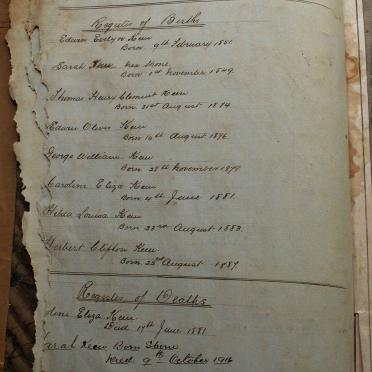 Register of Births
Edwin Evelyn Kew
Born 9th February 1851.
Sarah Kew nee Shone
Born 1st November 1849.
Thomas Henry Clement Kew
Born 21st August 1874.
Edwin Oliver Kew
Born 16th August 1876.
George William Kew
Born 28th November 1879.
Caroline Eliza Kew
Born 4th June 1881.
Hilda Louisa Kew
Born 23rd August 1883.
Herbert Clifton Kew
Born 25th August 1887.
Register of Deaths
oline Eliza Kew
Died 17th June 1881
arah Kew Born Shone
Died 9th October 1916